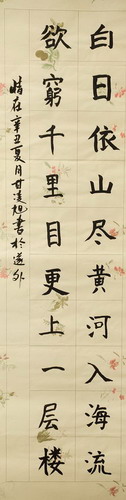 白日依山尽黄河入海流
欲窮千里目更上一层楼
時在辛丑夏月甘凌旭書於遂外